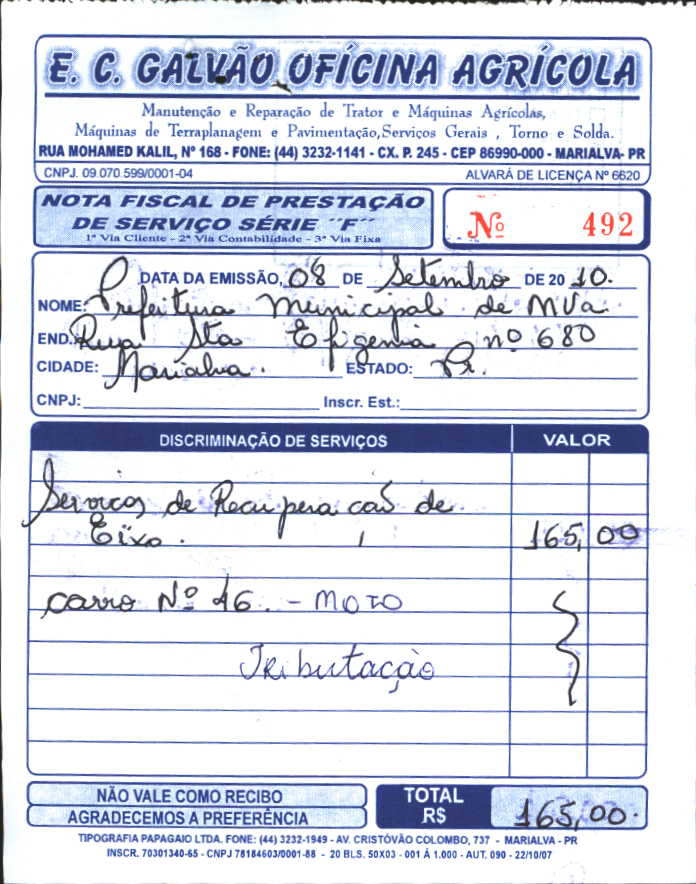 E. C. GALVÃO OFÍCINA AGRÍCOLA
Manutenção e Reparação de Trator e Máquinas Agrícolas,
Máquinas de Terraplanagem e Pavimentação,Serviços Gerais , Torno e Solda.
RUA MOHAMED KALIL, Nº 168 - FONE: (44) 3232-1141 - CX. P. 245 - CEP 86990-000 - MARIALVA- PR
CNPJ. 09.070.599/0001-04 ALVARÁ DE LICENÇA Nº 6620
NOTA FISCAL DE PRESTAÇÃO
DE SERVIÇO SÉRIE ´´F´´
1ª Via Cliente - 2ª Via Contabilidade - 3ª Via Fixa
Nº 492
DATA DA EMISSÃO, 08 DE Setembro DE 20 10.
NOME: Prefeitura Municipal de MVa
END. Rua Sta Efigenia nº 680
CIDADE: Marialva. ESTADO: Pr.
CNPJ: Inscr. Est.:
DISCRIMINAÇÃO DE SERVIÇOS VALOR
Serviços de Recuperação de
Eixo. 165,00
carro Nº 16. - MOTO
Tributação
NÃO VALE COMO RECIBO
AGRADECEMOS A PREFERÊNCIA
TOTAL
R$ 165,00.
TIPOGRAFIA PAPAGAIO LTDA. FONE: (44) 3232-1949 - AV. CRISTÓVÃO COLOMBO, 737 - MARIALVA - PR
INSCR. 70301340-65 - CNPJ 78184603/0001-88 - 20 BLS. 50X03 - 001 Á 1.000 - AUT. 090 - 22/10/07